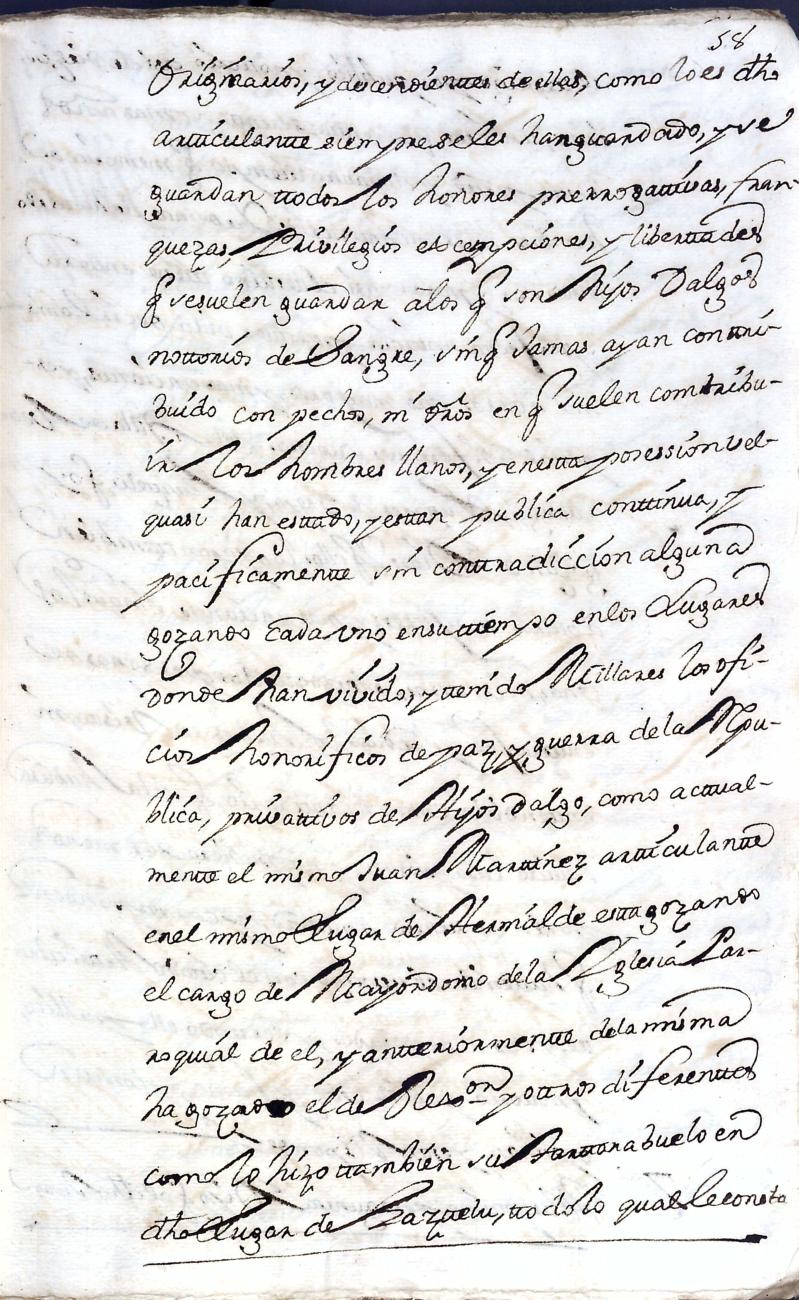 58
Originarios, y descendienttes de ellas, como lo es dho
artticulantte siempre seles hanguardado, y se
guardan ttodos los honores prerrogattivas, fran-
quezas, Privilegios excepciones, y liberttades
q̃ sesuelen guardar alos q̃ son Hijos Dalgo
nottorios de Sangre, sinq̃ Jamas ayan conttri-
buido con pechos, ni dr̃os en q̃ suelen comtribu-
ir los hombres llanos, y enestta possession vel-
quasi han esttado, y esttan publica conttinua, y
pacificamentte sin conttradiccion alguna
gozando cada uno ensuttiempo enlos Lugares
donde han vivido, y ttenido Millares los ofi-
cios honorificos de paz, y guerra dela Repu-
blica, privattivos de Hijos dalgo, como acttual-
mentte el mismo Juan Marttinez artticulantte
enel mismo Lugar de Hermalde estta gozando
el cargo de Mayordomo dela Yglesia Par-
roquial de el, y antteriormentte dela misma
ha gozado el de Rexor y ottros diferenttes
como lo hizo ttambien su tattarabuelo en
dho Lugar de ttodo lo qual le consta